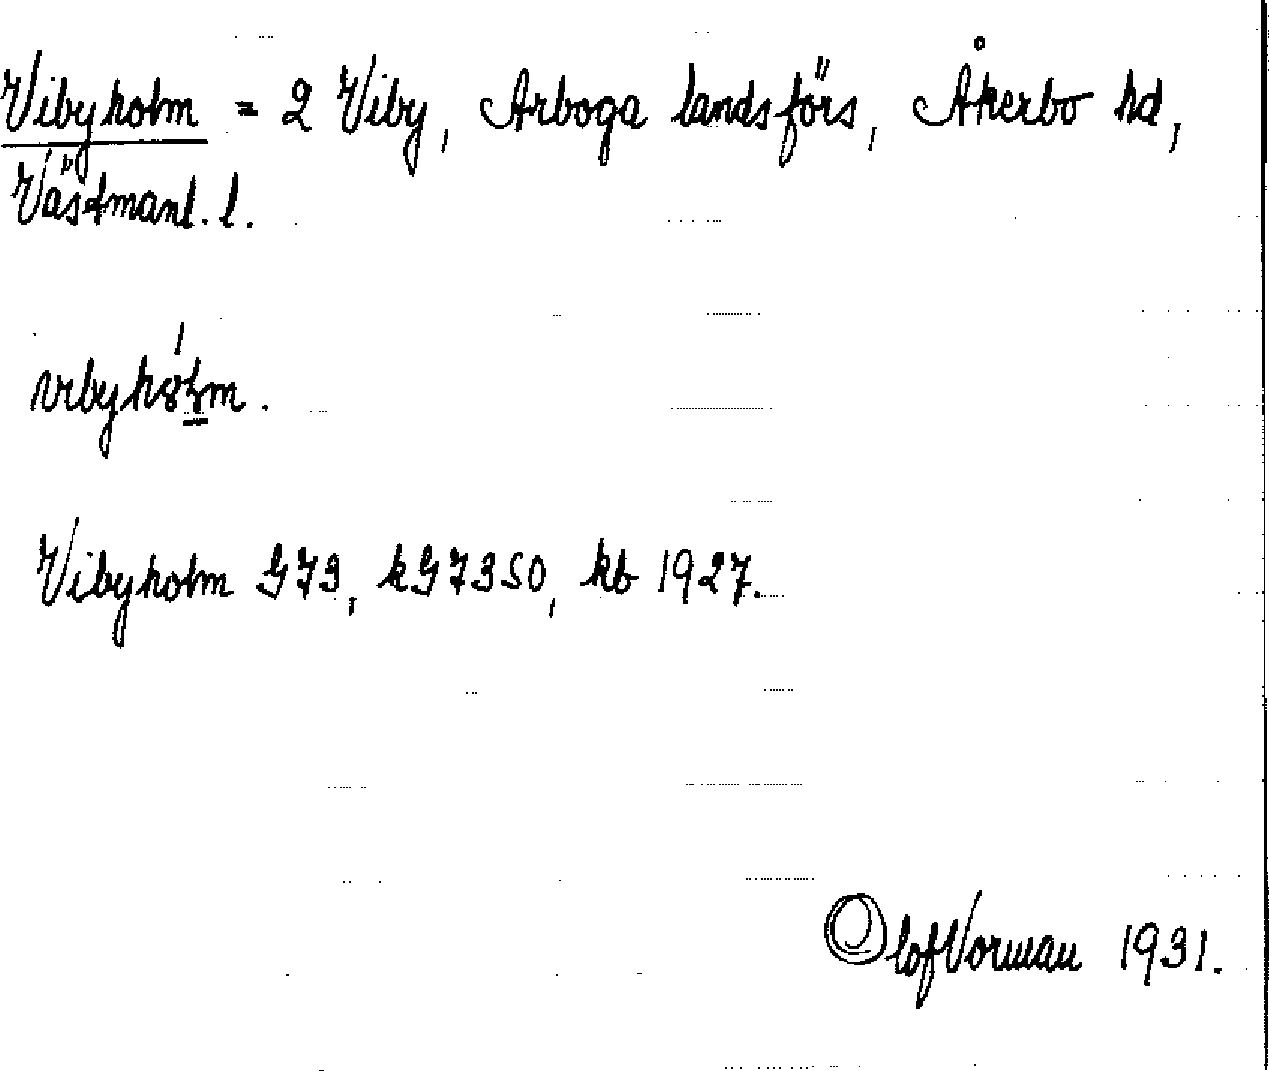 Vibyholm = 2 Viby, Arboga landsförs, Åkerbo hd,
Västmanl. l.
Vibyholm G73, kG7350, kb 1927.
Olof Vorman 1931.